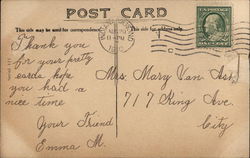 POST CARD
This side may be used for correspondence
This side for address only.
Thank you
for your pretty
cards, hope
you had a
nice time
Your Friend
Emma M.
Mrs. Mary Van
717 King Ave.
City